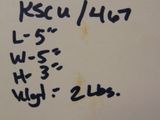 KSCU/467
L-5"
W-5"
H-3"
Wgt= 2Lbs.